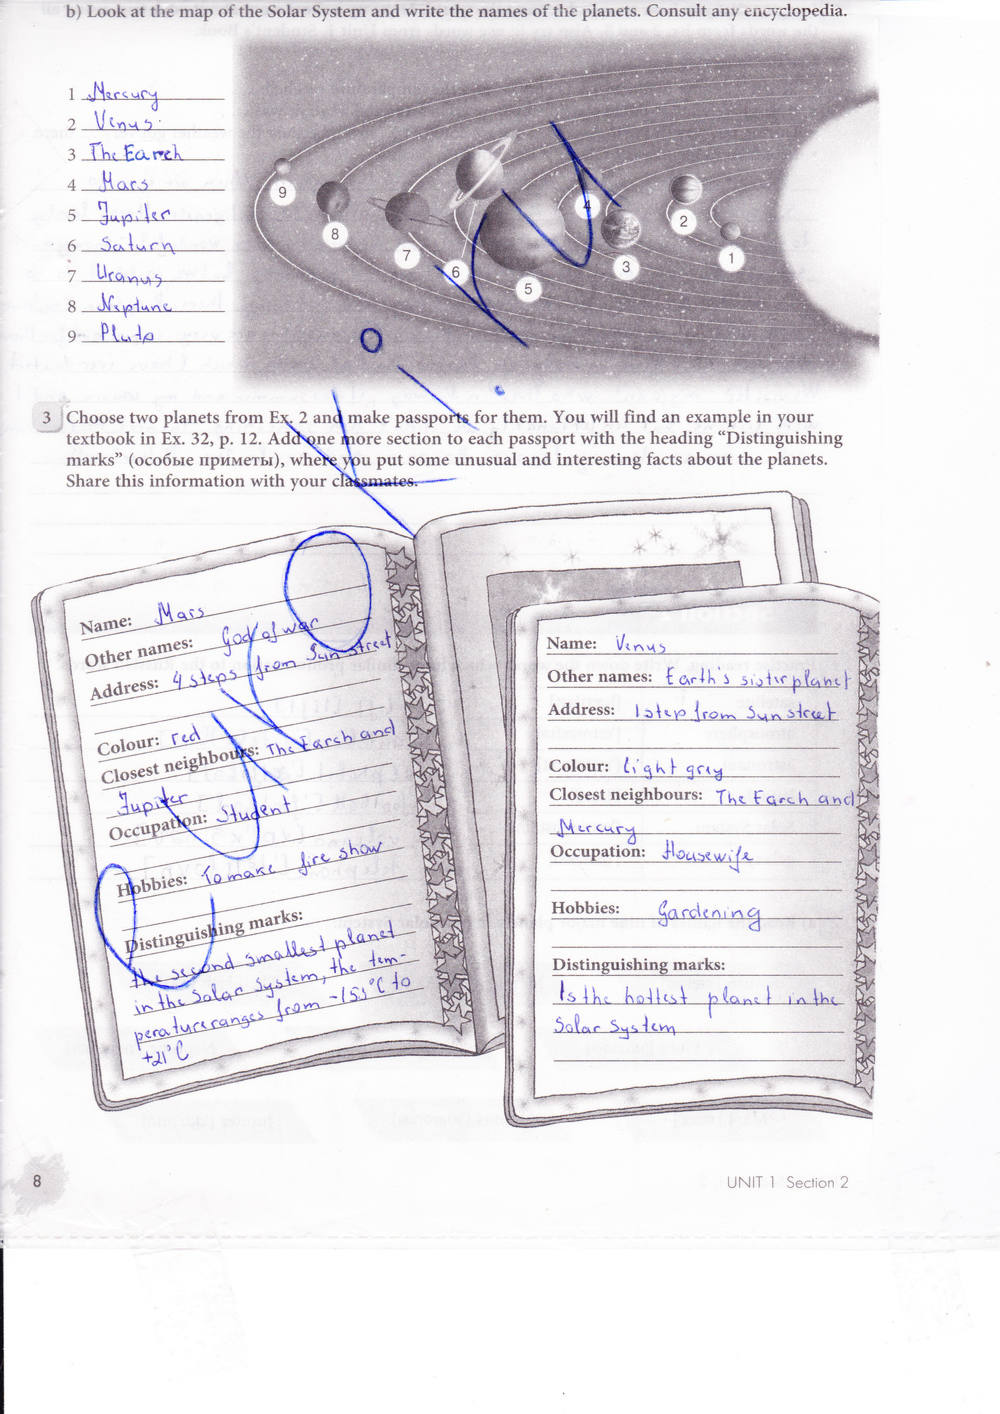 b) Look at the map of the Solar System and write the names of the planets. Consult any encyclopedia.
1 Mercury
2 Venus
3 The Earch
4 Mars
5 Jupiter
6 Saturn
7 Uranus
8 Neptune
9 Pluto
9
8
7
6
5
4
3
2
1
3 Choose two planets from Ex. 2 and make passports for them. You will find an example in your
textbook in Ex. 32, p. 12. Add one more section to each passport with the heading “Distinguishing
marks” (особые приметы), where you put some unusual and interesting facts about the planets.
Share this information with your classmates.
Name: Mars
Other names: God of war
Address: 4 steps from Sun street
Colour: red
Closest neighbours: The Earch and
Jupiter
Occupation: Student
Hobbies: To make fire show
Distinguishing marks:
the second smallest planet
in the Solar System, the tem-
perature ranges from -153°C to
+21°C
Name: Venus
Other names: Earth's sister planet
Address: 1 step from Sun street
Colour: light grey
Closest neighbours: The Earch and
Mercury
Occupation: Housewife
Hobbies: Gardening
Distinguishing marks:
Is the hottest planet in the
Solar System
8
UNIT 1 Section 2